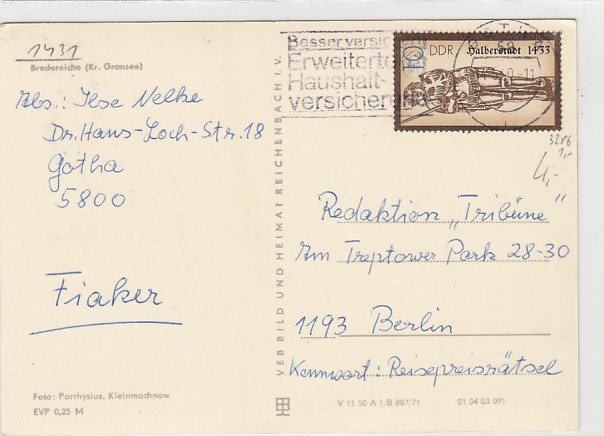 1431
Bredereiche (Kr. Gransee)
Abs.: Ilse Nelke
Dr.Hans-Loch-Str.18
Gotha
5800
Fiaker
Foto: Parrhysius, Kleinmachnow
EVP 0,25 M
VEB BILD UND HEIMAT REICHENBACH I. V.
Besser versichern
Erweiterte
Haushalt-
versicherung
10 DDR Halberstadt 1433
3286
1,-
4,-
Redaktion „Tribüne"
Am Treptower Park 28-30
1193 Berlin
Kennwort: Reisepreisrätsel
V 11 50 A 1 B 887/71 01 04 03 091